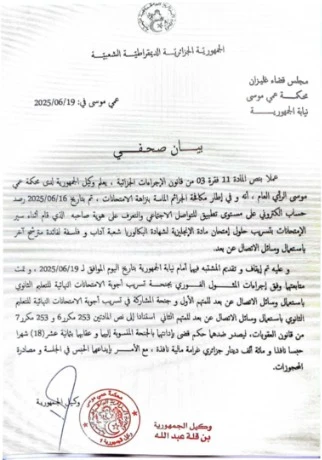 الجمهورية الجزائرية الديمقراطية الشعبية
مجلس قضاء غليزان
محكمة عمي موسى
نيابة الجمهورية
عمي موسى في: 2025/06/19
بيان صحفي
عملا بنص المادة 11 فقرة 03 من قانون الإجراءات الجزائية ، يعلم وكيل الجمهورية لدى محكمة عمي
موسى الرأي العام ، أنه و في إطار مكافحة الجرائم الماسة بنزاهة الامتحانات ، تم بتاريخ 2025/06/16 رصد
حساب الكتروني على مستوى تطبيق للتواصل الاجتماعي والتعرف على هوية صاحبه. الذي قام أثناء سير
الإمتحانات بتسريب حلول إمتحان مادة الإنجليزية لشهادة البكالوريا شعبة آداب و فلسفة لفائدة مترشح آخر
باستعمال وسائل الاتصال عن بعد.
و عليه تم إيقاف و تقديم المشتبه فيهما أمام نيابة الجمهورية بتاريخ اليوم الموافق لـ 2025/06/19 ، و تمت
متابعتهما وفق إجراءات المثول الفوري بجنحة تسريب أجوبة الامتحانات النهائية للتعليم الثانوي
باستعمال وسائل الاتصال عن بعد للمتهم الأول و جنحة المشاركة في تسريب أجوبة الامتحانات النهائية للتعليم
الثانوي باستعمال وسائل الاتصال عن بعد للمتهم الثاني استنادا إلى نص المادتين 253 مكرر 6 و 253 مكرر 7
من قانون العقوبات، ليصدر ضدهما حكم قضى بإدانتهما بالجنحة المنسوبة إليهما و عقابهما بثمانية عشر (18) شهرا
حبسا نافذا و مائة ألف دينار جزائري غرامة مالية نافذة ، مع الأمر بإيداعهما الحبس في الجلسة و مصادرة
المحجوزات.
وكيل الجمهورية
وكيل الجمهورية
بن قلة عبد الله